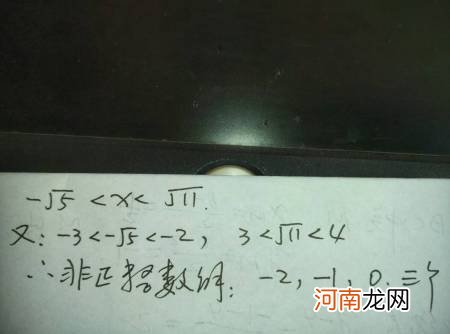 -√5 <x< √11.
又: -3<-√5<-2, 3<√11<4
∴非正整数解: -2, -1, 0, 三个
河南龙网